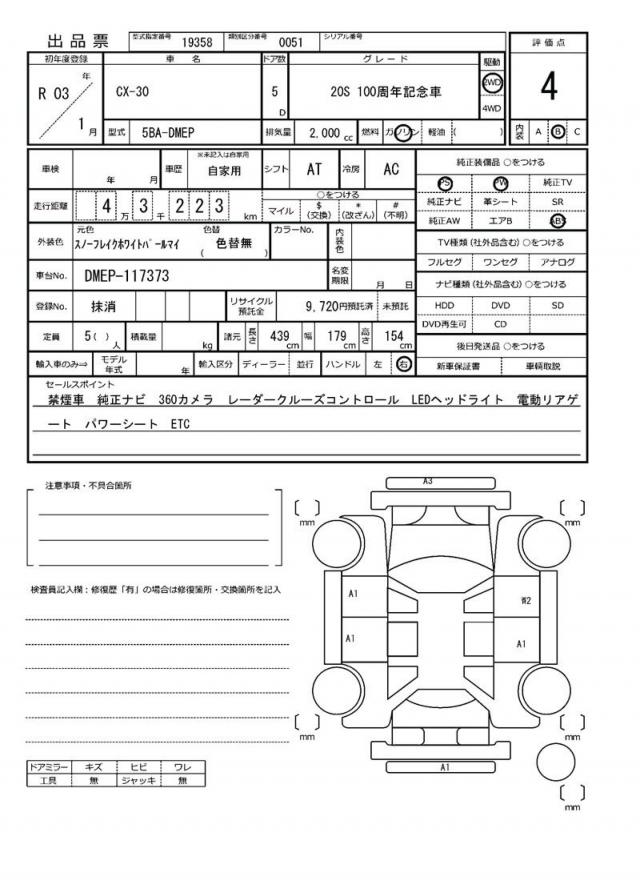 出品票
型式指定番号 19358 類別区分番号 0051 シリアル番号
評価点
初年度登録 車名 ドア数 グレード 駆動
R 03 年 1 月
CX-30
5 D
20S 100周年記念車
2WD
4WD
4
型式 5BA-DMEP 排気量 2,000 cc 燃料 ガソリン 軽油 ( )
内装 A B C
車検 年 月 車歴 ※未記入は自家用 自家用 シフト AT 冷房 AC
純正装備品 ○をつける
PS PW 純正TV
純正ナビ 革シート SR
純正AW エアB ABS
走行距離 4 万 3 千 2 2 3 km
○をつける
マイル $ (交換) * (改ざん) # (不明)
外装色 元色 スノーフレイクホワイトパールマイ 色替 ( 色替無 ) カラーNo. 内装色
TV種類 (社外品含む) ○をつける
フルセグ ワンセグ アナログ
車台No. DMEP-117373 名変期限 月 日
ナビ種類 (社外品含む) ○をつける
HDD DVD SD
DVD再生可 CD
登録No. 抹消 リサイクル預託金 9,720円預託済 未預託
定員 5( )人 積載量 kg 諸元 長さ 439 cm 幅 179 cm 高さ 154 cm
後日発送品 ○をつける
新車保証書 車輌取説
輸入車のみ⇒ モデル年式 年 輸入区分 ディーラー 並行 ハンドル 左 右
セールスポイント
禁煙車 純正ナビ 360カメラ レーダークルーズコントロール LEDヘッドライト 電動リアゲ
ート パワーシート ETC
注意事項・不具合箇所
検査員記入欄：修復歴「有」の場合は修復箇所・交換箇所を記入
A3
[ ] mm
[ ] mm
A1
A1
A1
[ ] mm
[ ] mm
A1
[ ] mm
ドアミラー キズ ヒビ ワレ
工具 無 ジャッキ 無